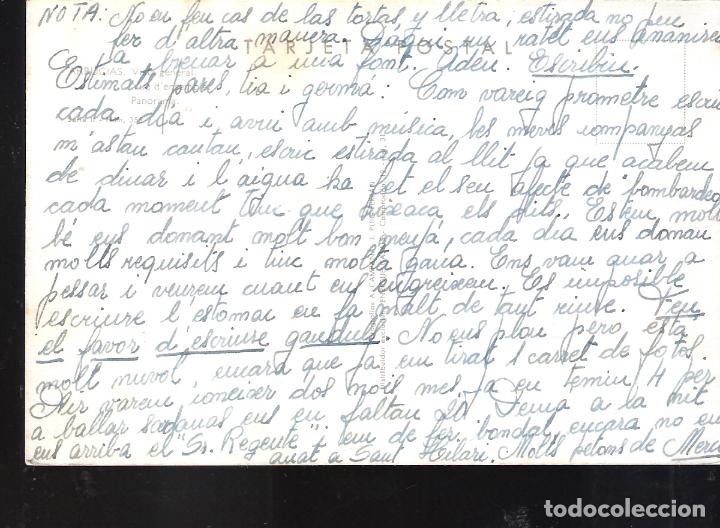 NOTA: No en feu cas de las tortas, y lletra, estirada no puc
fer d'altra manera. Daqui un ratet ens anirem
a brenar a una font. Adeu. Escribiu.
TARJETA POSTAL
ARBUCIAS. Vista general
Estimats pares, tia i germá: Com vareig prometre escriu
Panorama
cada dia i avui amb música, les meves companyas
m'astan cantan, escric estirada al llit ja que acabem
de dinar i l'aigua ha fet el seu afecte de bombardeo
cada moment tinc que els dits. Estem molt
bé ens donant molt bon menjá, cada dia ens donan
molts requisits i tinc molta gana. Ens vam anar a
pessar i veurem cuant ens engreixem. Es imposible
escriure l'estomac em fa malt de tant riure. Feu
el favor d'escriure gandul. No ens plou pero está
molt nuvol, encara que ja em tirat 1 carret de fotos.
Ahir varem coneixer dos nois mes, ja en tenim 4 per
a ballar sardanas ens en faltan 20. Tenia a la nit
ens arriba el "Sr. Regente" i em de fer bondat, encara no em
anat a Sant Hilari. Molts petons de Merc